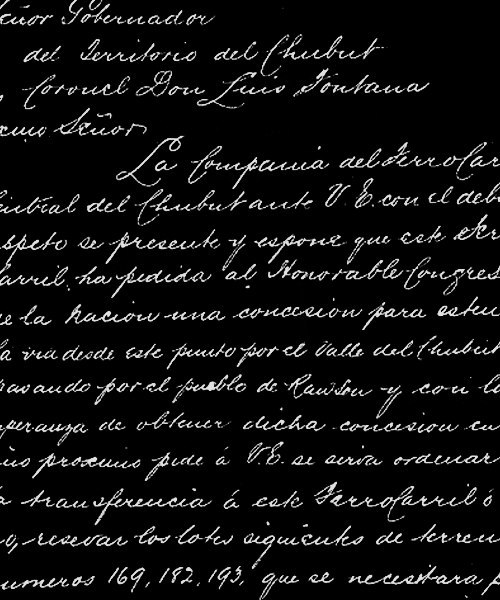 eñor Gobernador
del Territorio del Chubut
Coronel Don Luis Fontana
cmo Señor
La Compania del FerroCar
entral del Chubut ante V.E. con el deb
speto se presente y espone que este Ferr
arril, ha pedida al Honorable Congres
e la Nacion una concesion para esten
a via desde este punto por el Valle del Chubut
pasando por el pueblo de Rawson y con la
speranza de obtener dicha concesion en
ño procsimo pide á V.E. se sirva ordenar
a transferencia á este FerroCarril ó
o, reservar los lotes siguientes de terren
umeros 169, 182, 193, que se necesitara p